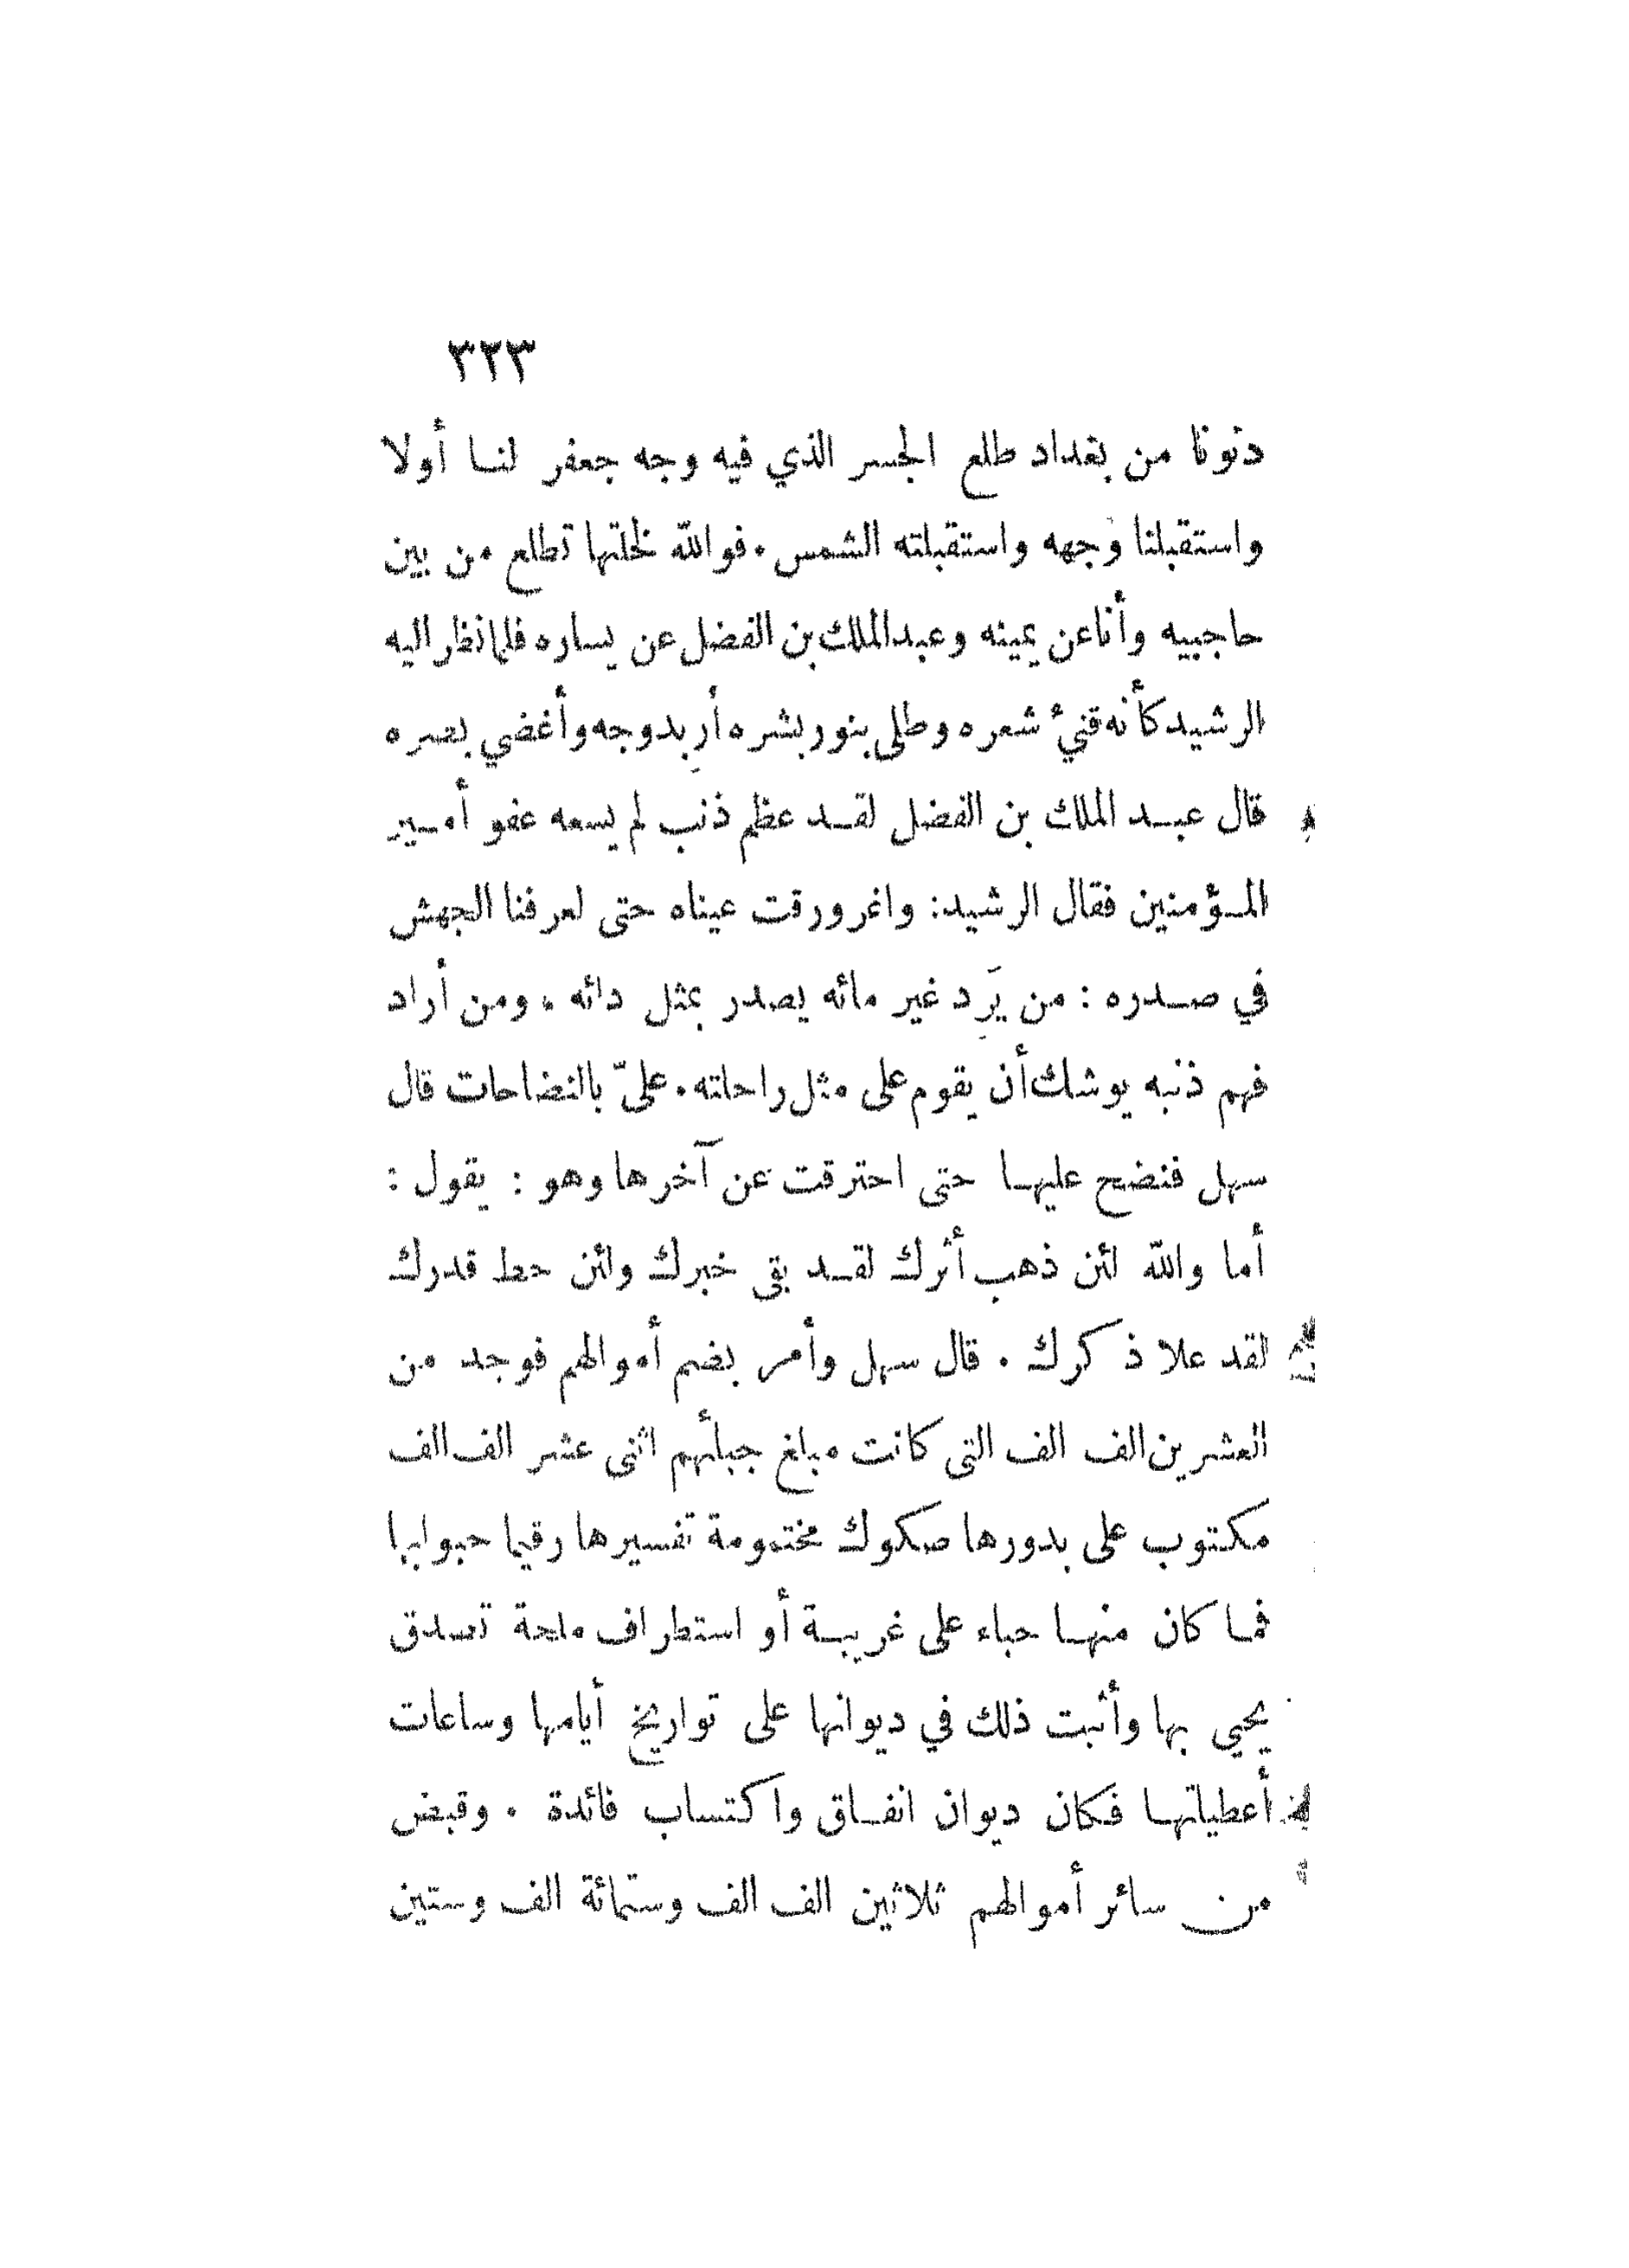 ٣٢٣
دنونا من بغداد طلع الجسر الذي فيه وجه جعفر لنا أولا
واستقبلنا وجهه واستقبلته الشمس. فوالله لخلتها تطلع من بين
حاجبيه وأنا عن يمينه وعبد الملك بن الفضل عن يساره فلما نظر اليه
الرشيد كأنه قنئ شعره وطلى بنور بشره أربد وجهه وأغضي بصره
قال عبد الملك بن الفضل لقد عظم ذنب لم يسعه عفو أمير
المؤمنين فقال الرشيد: واغرورقت عيناه حتى لعرفنا الجهش
في صدره : من يَرِد غير مائه يصدر بمثل دائه . ومن أراد
فهم ذنبه يوشك أن يقوم على مثل راحلته. عليّ بالنضاحات قال
سهل فنضح عليها حتى احترقت عن آخرها وهو : يقول :
أما والله لئن ذهب أثرك لقد بقى خبرك ولئن حط قدرك
لقد علا ذكرك . قال سهل وأمر بضم أموالهم فوجد من
العشرين الف الف التى كانت مبلغ جبأتهم اثنى عشر الف الف
مكتوب على بدورها صكوك مختومة تفسيرها رقيما حبوابها
فما كان منها حباء على غريبة أو استطراف ملحة تصدق
يحيي بها وأثبت ذلك في ديوانها على تواريخ أيامها وساعات
أعطياتها فكان ديوان انفاق واكتساب فائدة . وقبض
من سائر أموالهم ثلاثين الف الف وستمائة الف وستين